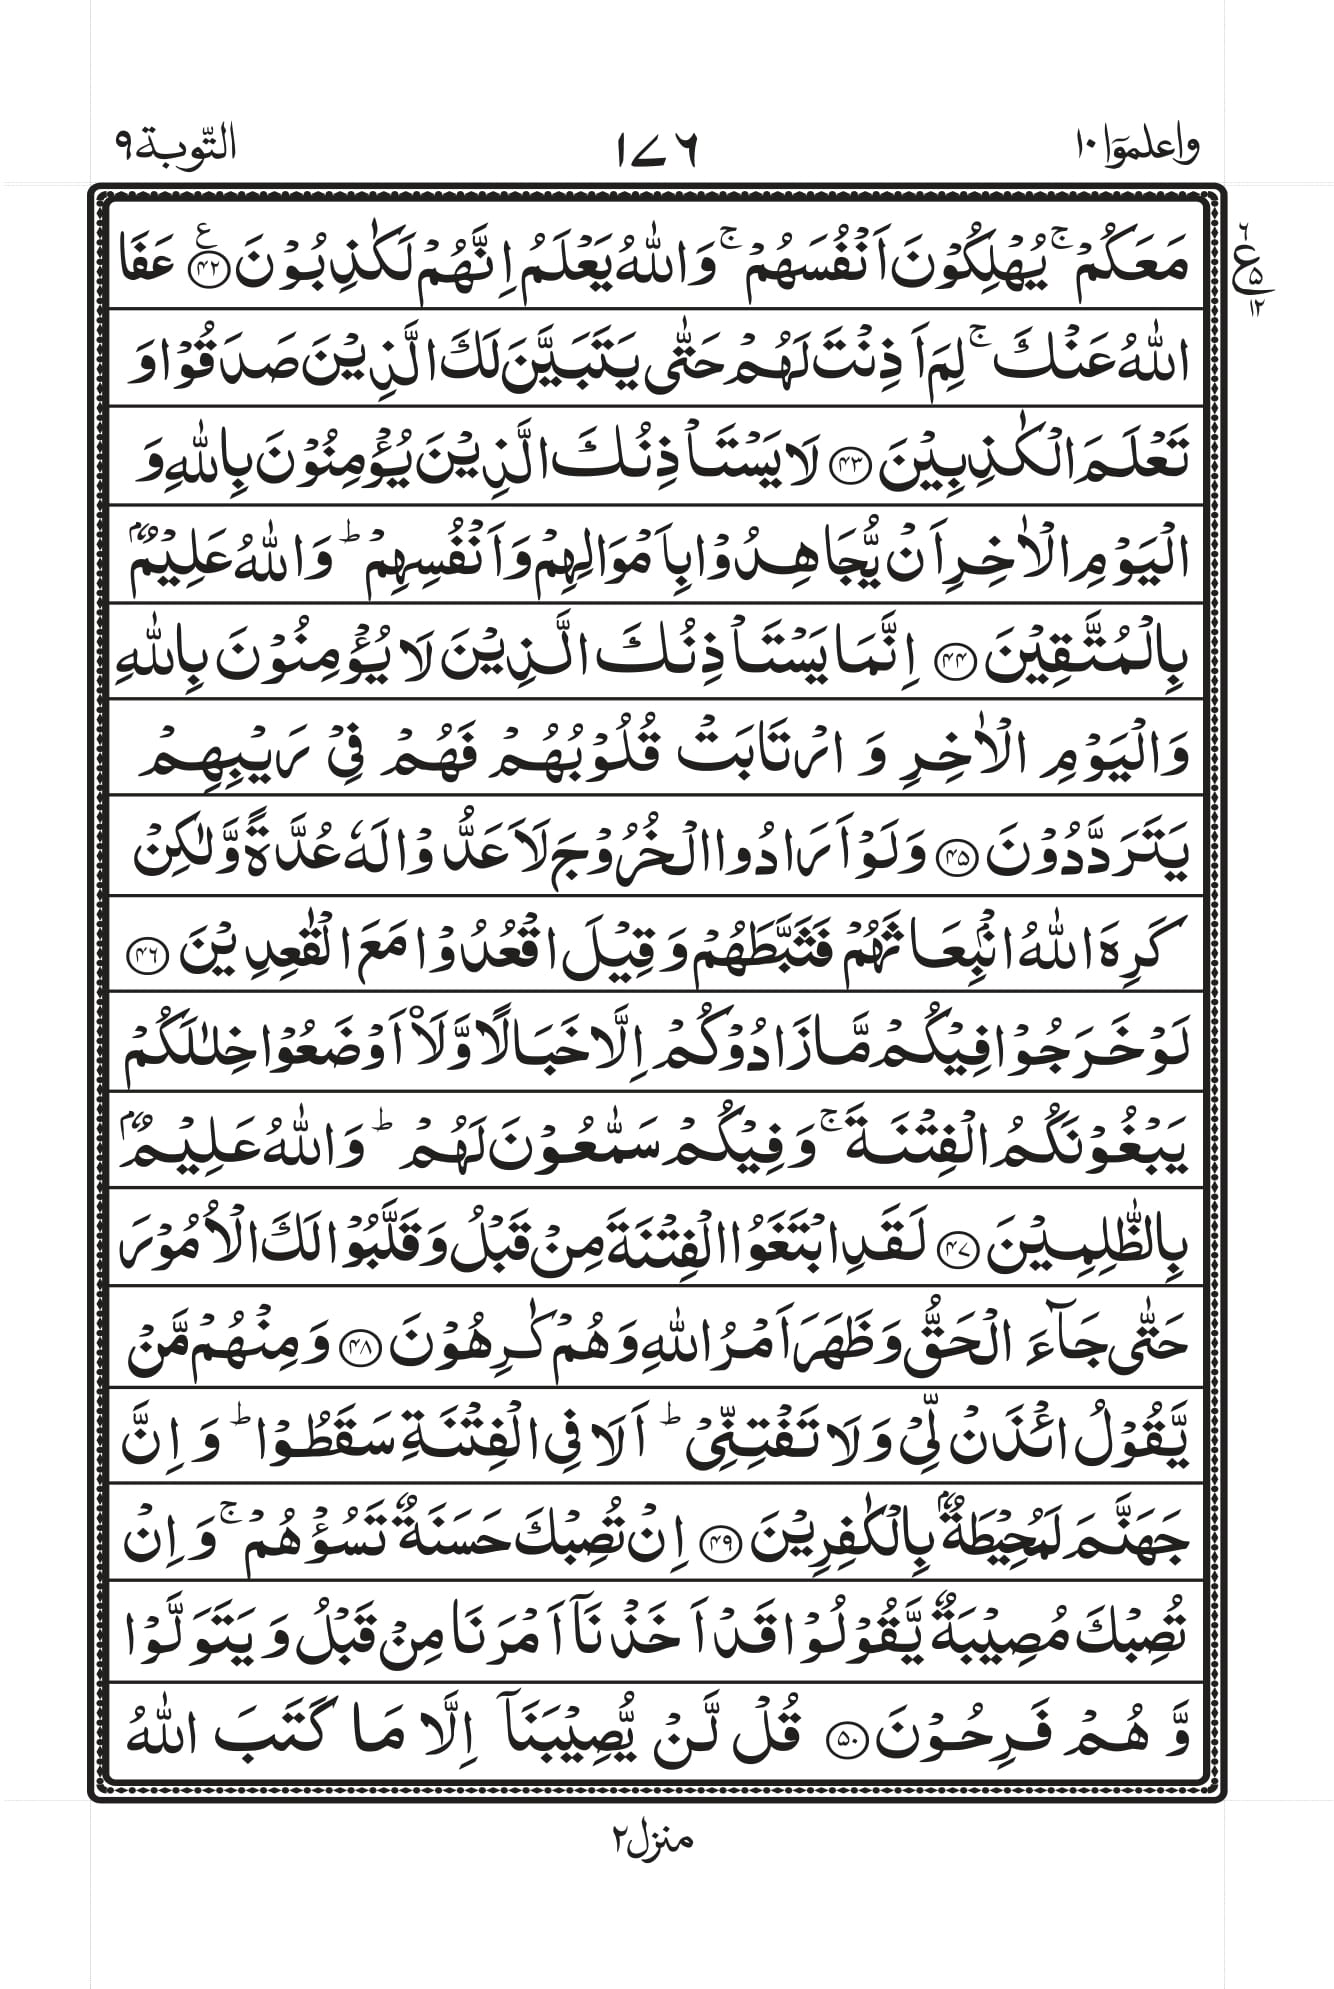 واعلموٓا ۱۰ ۱۷۶ التّوبة ۹
مَعَكُمْ ۚ يُهْلِكُوْنَ اَنْفُسَهُمْ ۚ وَاللّٰهُ يَعْلَمُ اِنَّهُمْ لَكٰذِبُوْنَ ﴿۴۲﴾ ع عَفَا
ع ۶ ۵ ۱۲
اللّٰهُ عَنْكَ ۚ لِمَ اَذِنْتَ لَهُمْ حَتّٰى يَتَبَيَّنَ لَكَ الَّذِيْنَ صَدَقُوْا وَ
تَعْلَمَ الْكٰذِبِيْنَ ﴿۴۳﴾ لَا يَسْتَاْذِنُكَ الَّذِيْنَ يُؤْمِنُوْنَ بِاللّٰهِ وَ
الْيَوْمِ الْاٰخِرِ اَنْ يُّجَاهِدُوْا بِاَمْوَالِهِمْ وَاَنْفُسِهِمْ ؕ وَاللّٰهُ عَلِيْمٌۢ
بِالْمُتَّقِيْنَ ﴿۴۴﴾ اِنَّمَا يَسْتَاْذِنُكَ الَّذِيْنَ لَا يُؤْمِنُوْنَ بِاللّٰهِ
وَالْيَوْمِ الْاٰخِرِ وَ ارْتَابَتْ قُلُوْبُهُمْ فَهُمْ فِيْ رَيْبِهِمْ
يَتَرَدَّدُوْنَ ﴿۴۵﴾ وَلَوْ اَرَادُوا الْخُرُوْجَ لَاَعَدُّوْا لَهٗ عُدَّةً وَّلٰكِنْ
كَرِهَ اللّٰهُ انْۢبِعَاثَهُمْ فَثَبَّطَهُمْ وَقِيْلَ اقْعُدُوْا مَعَ الْقٰعِدِيْنَ ﴿۴۶﴾
لَوْ خَرَجُوْا فِيْكُمْ مَّا زَادُوْكُمْ اِلَّا خَبَالًا وَّلَا۟اَوْضَعُوْا خِلٰلَكُمْ
يَبْغُوْنَكُمُ الْفِتْنَةَ ۚ وَفِيْكُمْ سَمّٰعُوْنَ لَهُمْ ؕ وَاللّٰهُ عَلِيْمٌۢ
بِالظّٰلِمِيْنَ ﴿۴۷﴾ لَقَدِ ابْتَغَوُا الْفِتْنَةَ مِنْ قَبْلُ وَقَلَّبُوْا لَكَ الْاُمُوْرَ
حَتّٰى جَآءَ الْحَقُّ وَظَهَرَ اَمْرُ اللّٰهِ وَهُمْ كٰرِهُوْنَ ﴿۴۸﴾ وَمِنْهُمْ مَّنْ
يَّقُوْلُ ائْذَنْ لِّيْ وَلَا تَفْتِنِّيْ ؕ اَلَا فِي الْفِتْنَةِ سَقَطُوْا ؕ وَ اِنَّ
جَهَنَّمَ لَمُحِيْطَةٌۢ بِالْكٰفِرِيْنَ ﴿۴۹﴾ اِنْ تُصِبْكَ حَسَنَةٌ تَسُؤْهُمْ ۚ وَ اِنْ
تُصِبْكَ مُصِيْبَةٌ يَّقُوْلُوْا قَدْ اَخَذْنَاۤ اَمْرَنَا مِنْ قَبْلُ وَ يَتَوَلَّوْا
وَّ هُمْ فَرِحُوْنَ ﴿۵۰﴾ قُلْ لَّنْ يُّصِيْبَنَاۤ اِلَّا مَا كَتَبَ اللّٰهُ
منزل ۲